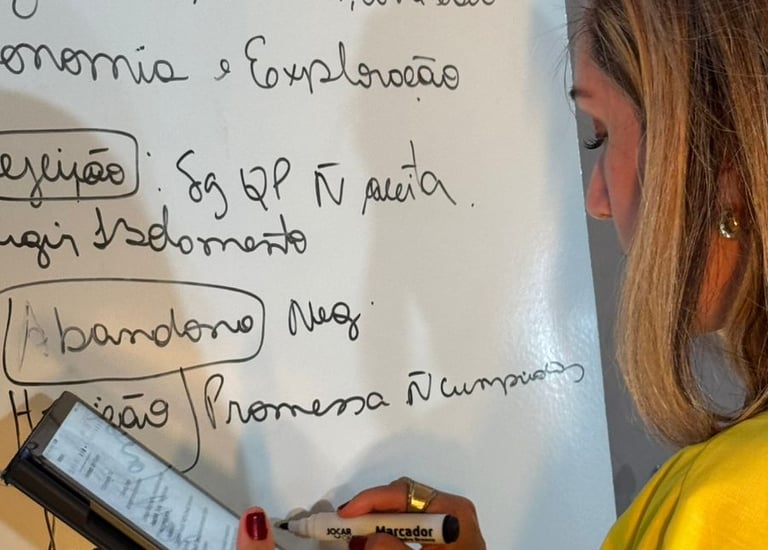 onomia e Exploração
ejeição: Sg QP Ñ aceita.
ugir Isolamento
Abandono Neg.
Promessa Ñ cumpridas
JOCAR Marcador